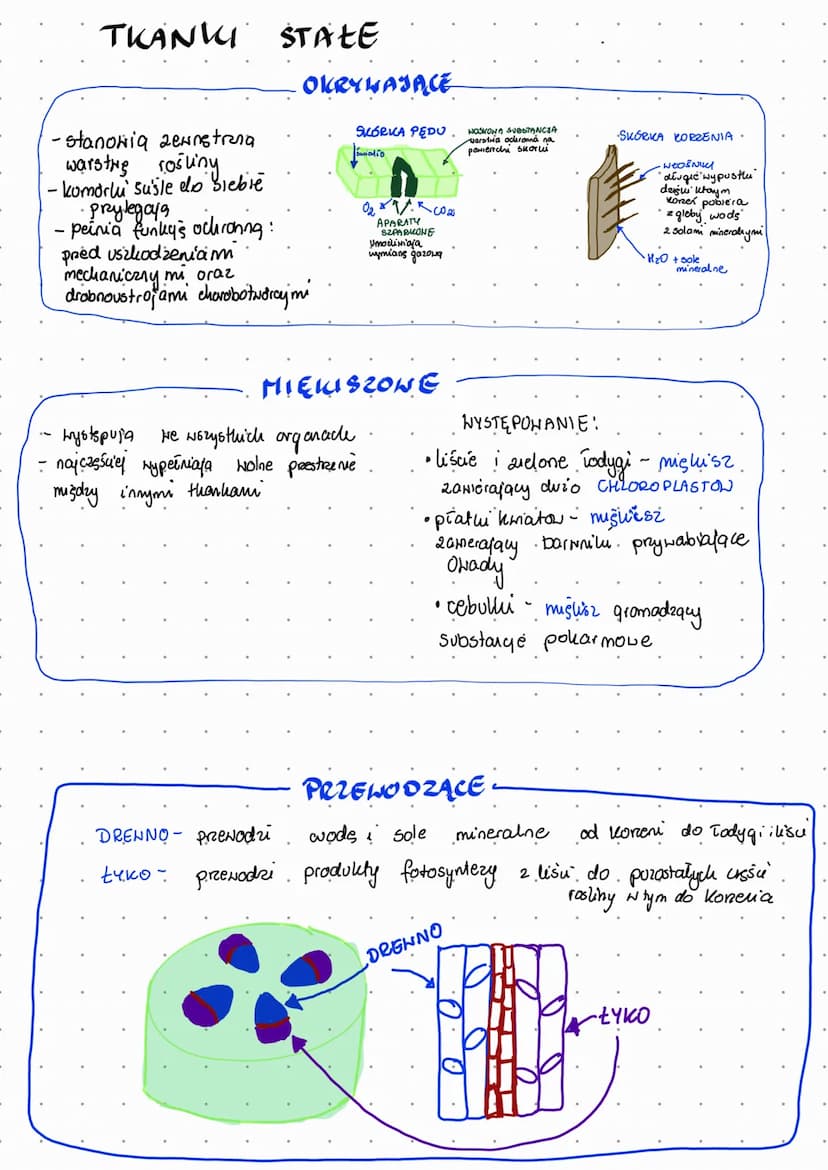 TKANKI STAŁE
OKRYWAJĄCE
- stanowią zewnętrzną
warstwę rośliny
- komórki ściśle do siebie
przylegają
- pełnią funkcję ochronną:
przed uszkodzeniami
mechanicznymi oraz
drobnoustrojami chorobotwórczymi
SKÓRKA PĘDU
światło
WOSKOWA SUBSTANCJA
warstwa ochronna na
powierzchni skórki
O2
CO2
APARATY
SZPARKOWE
umożliwiają
wymianę gazową
SKÓRKA KORZENIA
WŁOŚNIKI
długie wypustki
dzięki którym
korzeń pobiera
z gleby wodę
z solami mineralnymi
H2O + sole
mineralne
MIĘKISZOWE
- występują we wszystkich organach
- najczęściej wypełniają wolne przestrzenie
między innymi tkankami
WYSTĘPOWANIE:
• liście i zielone łodygi - miękisz
zawierający dużo CHLOROPLASTÓW
• płatki kwiatów - miękisz
zawierający barwniki przywabiające
owady
• cebulki - miękisz gromadzący
substancje pokarmowe
PRZEWODZĄCE
DREWNO - przewodzi wodę i sole mineralne od korzeni do łodygi i liści
ŁYKO - przewodzi produkty fotosyntezy z liści do pozostałych części
rośliny w tym do korzenia
DREWNO
ŁYKO